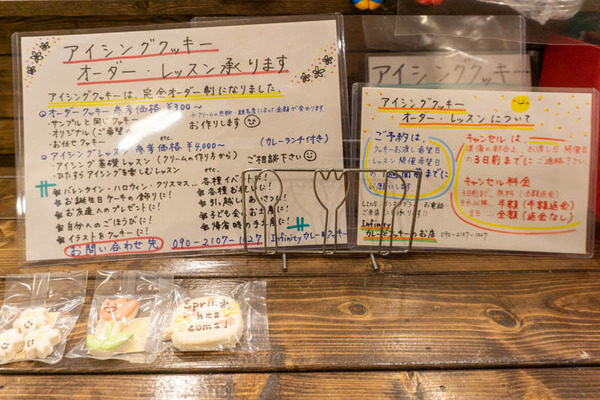 アイシングクッキー
オーダー・レッスン承ります
アイシングクッキーは、完全オーダー制になりました
オーダークッキー 参考価格 ¥300〜
・サンプルと同じクッキー
・オリジナル(ご希望
・お任せクッキー etc.
お作りします
アイシングレッスン 参考価格 ¥4,000〜
(カレーランチ付き)
・アイシング 基礎レッスン (クリームの作り方から)
・ひたすらアイシングを楽しむレッスン
etc.
ご相談下さい
バレンタイン・ハロウィン・クリスマス…
お誕生日ケーキの飾りに!
お友達へのプレゼントに!
自分へのごほうびに!
イラストをクッキーに!
各種イベ
各種お祝いに!
引っ越し
子ども会
帰省時の手土産に!
お問い合わせ先 090-2107-1027 Infinity カレーとクッキー
アイシングクッキー
アイシングクッキー
オーダー・レッスンについて
ご予約は、
クッキーお渡し希望日
レッスン開催希望日
の1週間前までに
お願いします
LINE・インスタグラム・お電話
ご来店にて承ります!!
Infinity
カレーとクッキーのお店 090-2107-1027
キャンセルは、
準備の都合上、お渡し日、開催日
の3日前までにご連絡下さい。
キャンセル料金
3日前まで 無料(全額返金)
半額(半額返金)
当日 … 全額(返金なし)
Spring
has
come!